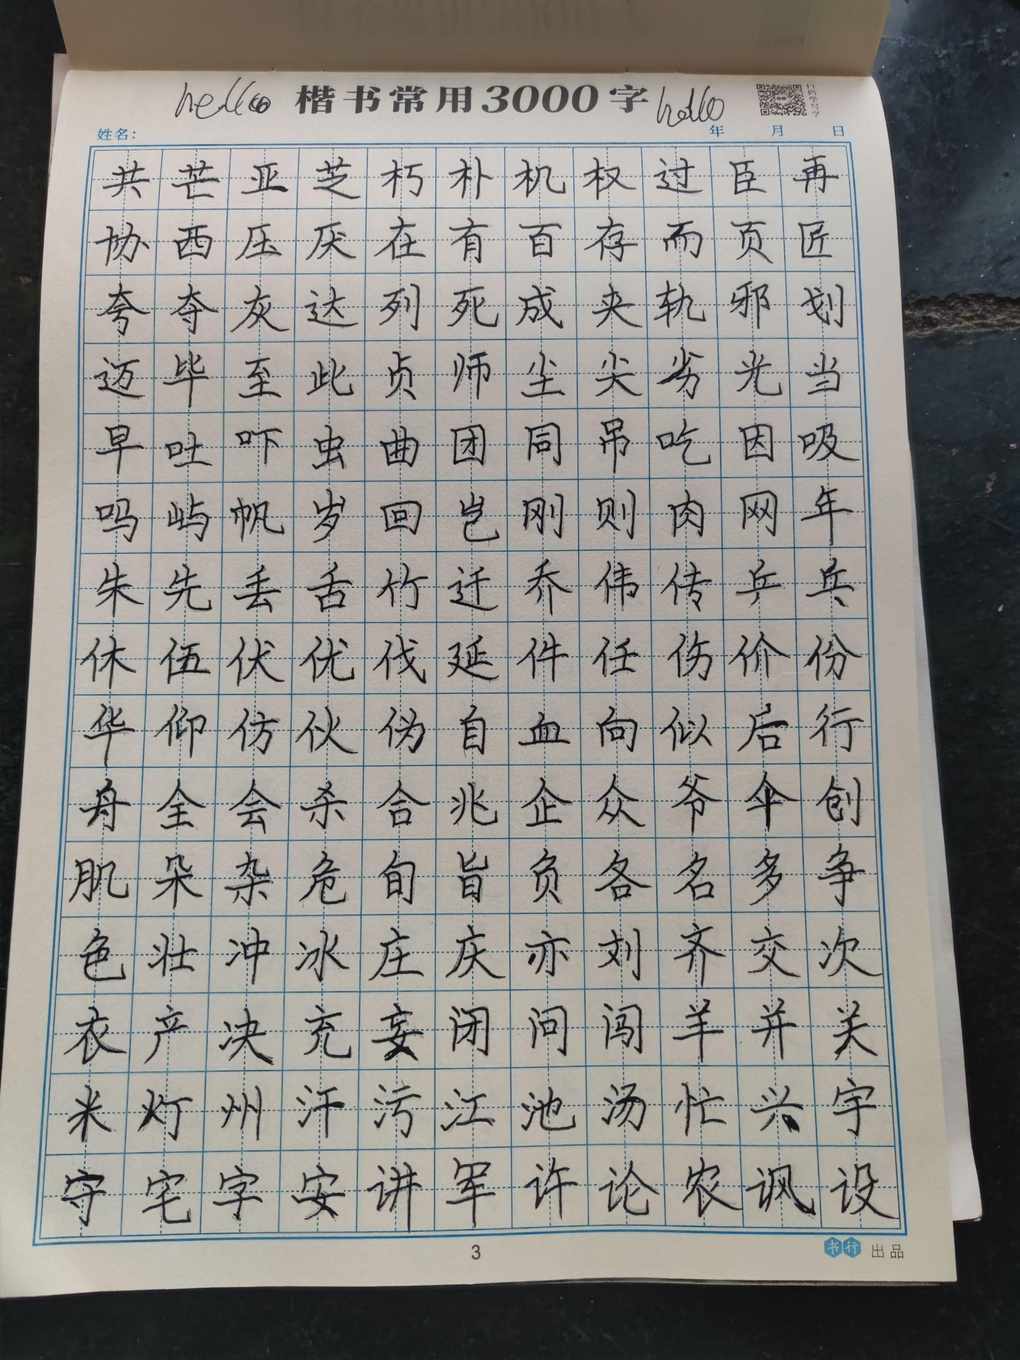 hello 楷书常用3000字 hello
姓名： 年 月 日
共芒亚芝朽朴机权过臣再
协西压厌在有百存而页匠
夸夺灰达列死成夹轨邪划
迈毕至此贞师尘尖劣光当
早吐吓虫曲团同吊吃因吸
吗屿帆岁回岂刚则肉网年
朱先丢舌竹迁乔伟传乒乓
休伍伏优伐延件任伤价份
华仰仿伙伪自血向似后行
舟全会杀合兆企众爷伞创
肌朵杂危旬旨负各名多争
色壮冲冰庄庆亦刘齐交次
衣产决充妄闭问闯羊并关
米灯州汗污江池汤忙兴宇
守宅字安讲军许论农讽设
3
书行 出品